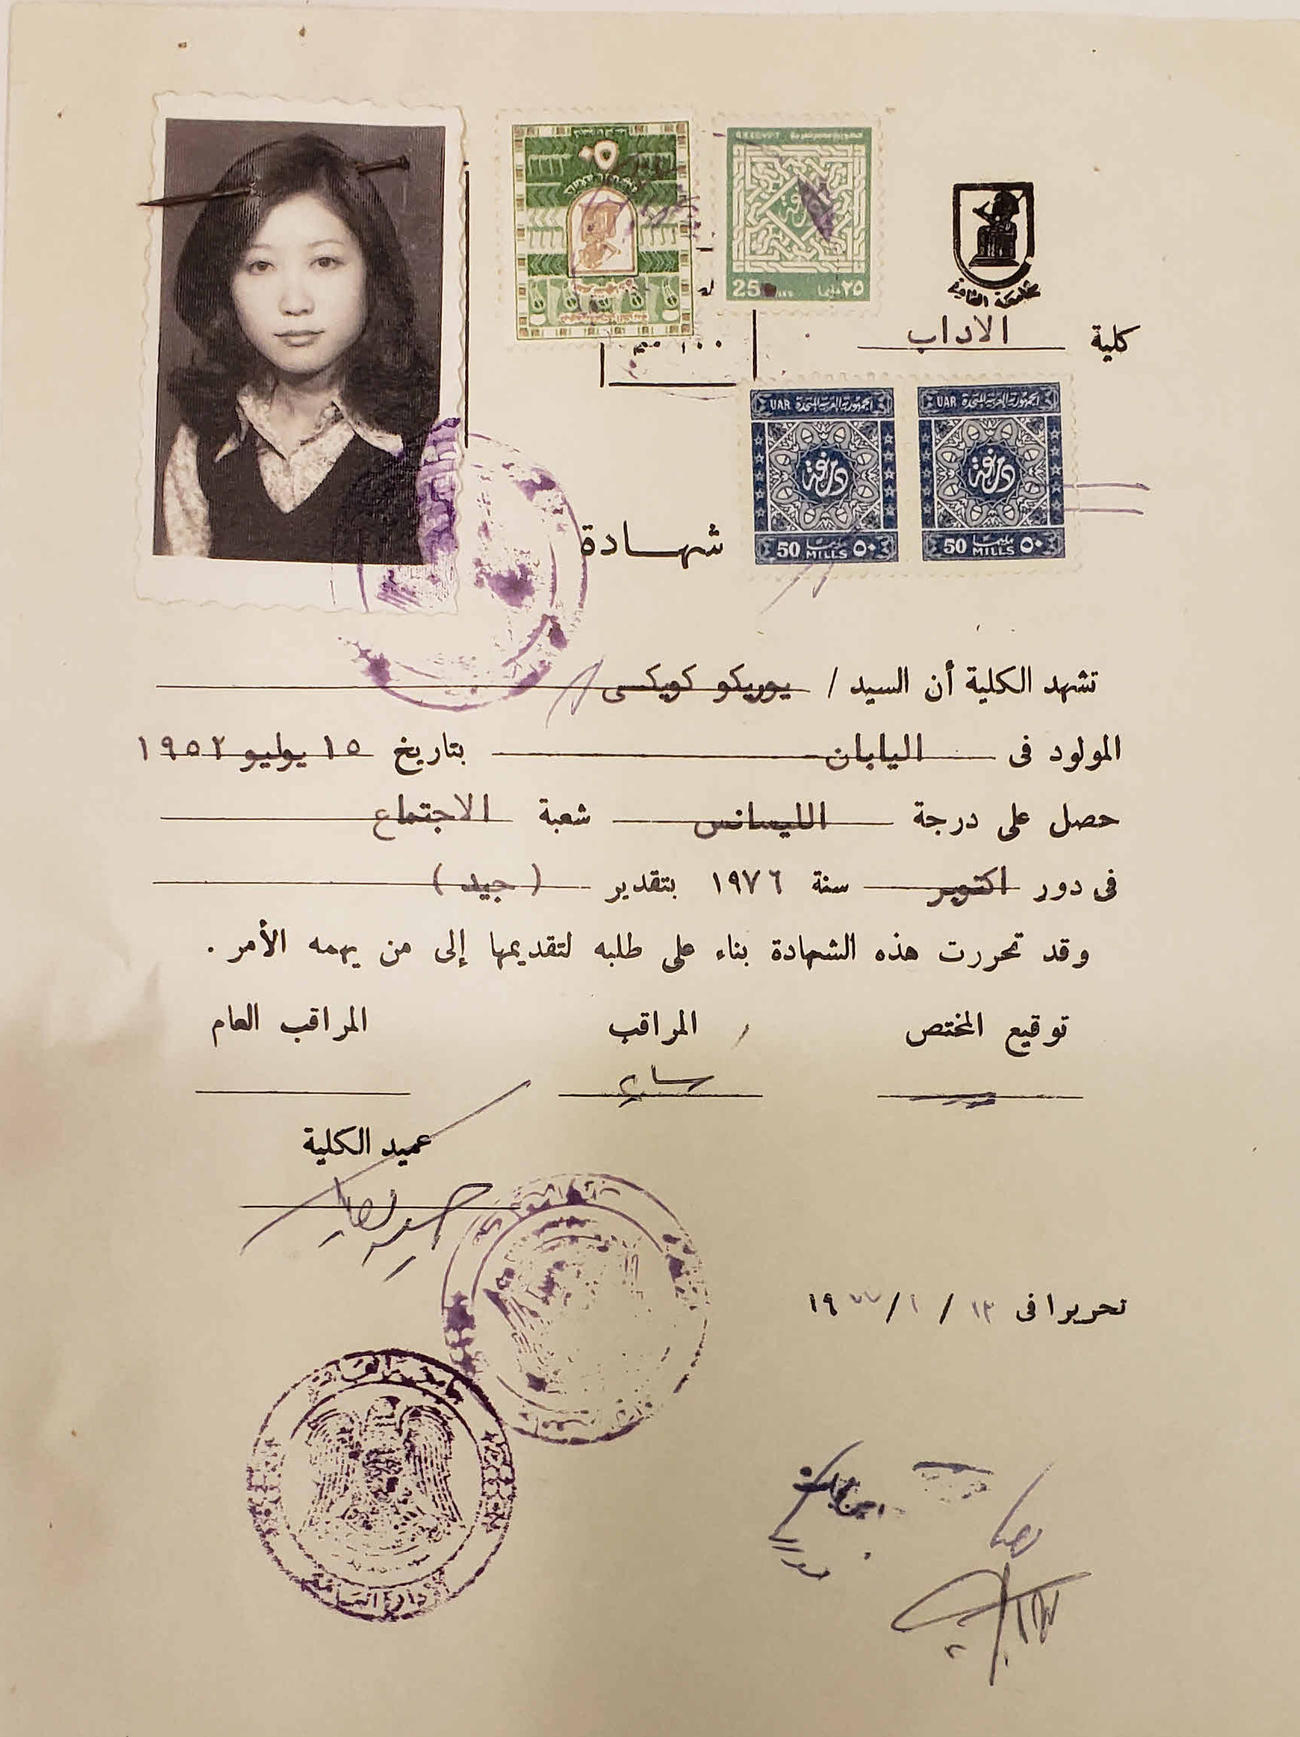 جامعة القاهرة
كلية الاداب
A.R.EGYPT جمهورية مصر العربية
25 مليما ٢٥
١٠٠ مليم
UAR الجمهورية العربية المتحدة
دمغة
50 MILLS مليما ٥٠
UAR الجمهورية العربية المتحدة
دمغة
50 MILLS مليما ٥٠
شهــادة
تشهد الكلية أن السيد / يوريكو كويكى
المولود فى اليابان بتاريخ ١٥ يوليو ١٩٥٢
حصل على درجة الليسانس شعبة الاجتماع
فى دور اكتوبر سنة ١٩٧٦ بتقدير ( جيد )
وقد تحررت هذه الشهادة بناء على طلبه لتقديمها إلى من يهمه الأمر .
توقيع المختص المراقب المراقب العام
عميد الكلية
تحريرا فى ١٣ / ١ / ١٩٧٧
جامعة القاهرة